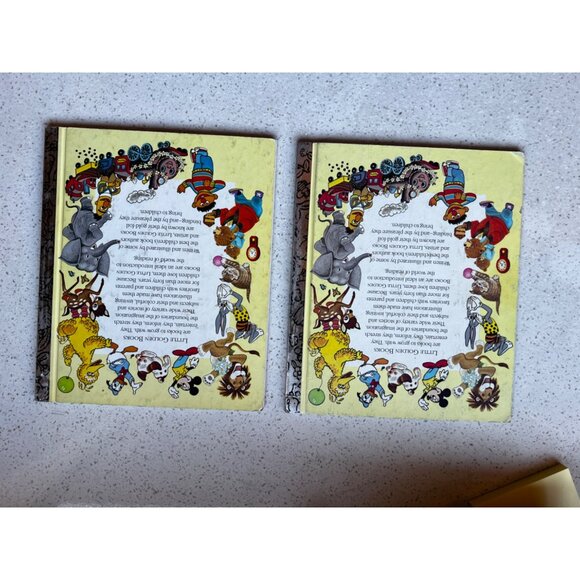 LITTLE GOLDEN BOOKS
are books to grow with. They
entertain, they inform, they stretch
the boundaries of the imagination.
Their wide variety of stories and
subjects and their colorful, winning
illustrations have made them
favorites with children and parents
for more than forty years. Because
children love them, LITTLE GOLDEN
BOOKS are an ideal introduction to
the world of reading.
Written and illustrated by some of
the best children's book authors
and artists, LITTLE GOLDEN BOOKS
are known by their gold foil
binding—and by the pleasure they
bring to children.
LITTLE GOLDEN BOOKS
are books to grow with. They
entertain, they inform, they stretch
the boundaries of the imagination.
Their wide variety of stories and
subjects and their colorful, winning
illustrations have made them
favorites with children and parents
for more than forty years. Because
children love them, LITTLE GOLDEN
BOOKS are an ideal introduction to
the world of reading.
Written and illustrated by some of
the best children's book authors
and artists, LITTLE GOLDEN BOOKS
are known by their gold foil
binding—and by the pleasure they
bring to children.